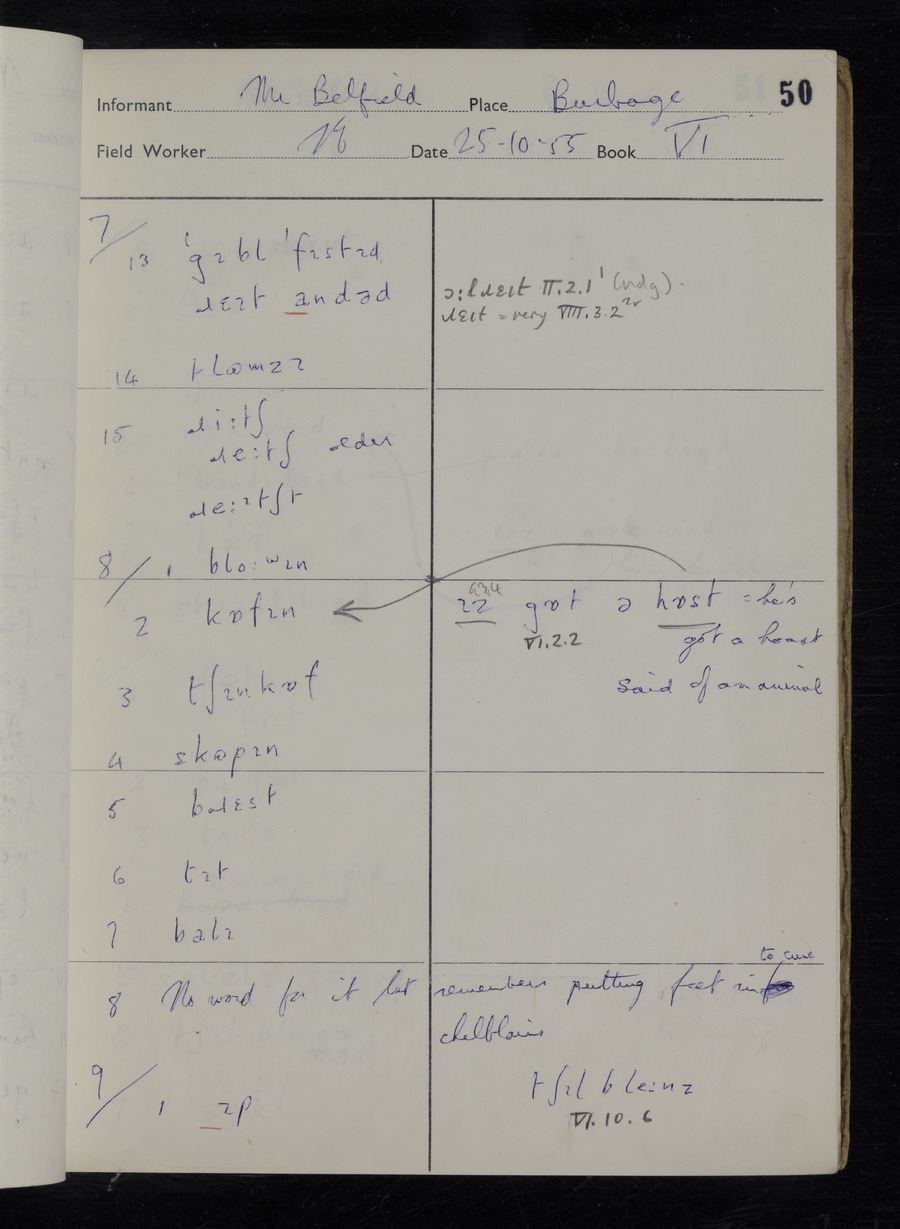 50
Informant Mr Belfield Place Burbage
Field Worker Date 25-10-55 Book VI
7/
13 ˈgɪbl ˈfɪstɪd
ɹɛɪt andəd
ɔ:lɹɛɪt II.2.1 (ndg).
ɹɛɪt = very VIII.3.2
14
15 ɹi:tʃ
ɹe:tʃ older
ɹe:ɪtʃt
8/ 1 blo:wɪn
2 kɒfɪn
ɪz gɒt ə hɒst = he's
VI.2.2 got a hoast
said of an animal
3 tʃɪnkɒf
4
5 bɹɛst
6 tɪt
7
8 No word for it but remembers putting feet in to cure
chelblains
tʃɪlbleɪnz
VI.10.6
9/
1 ɪp